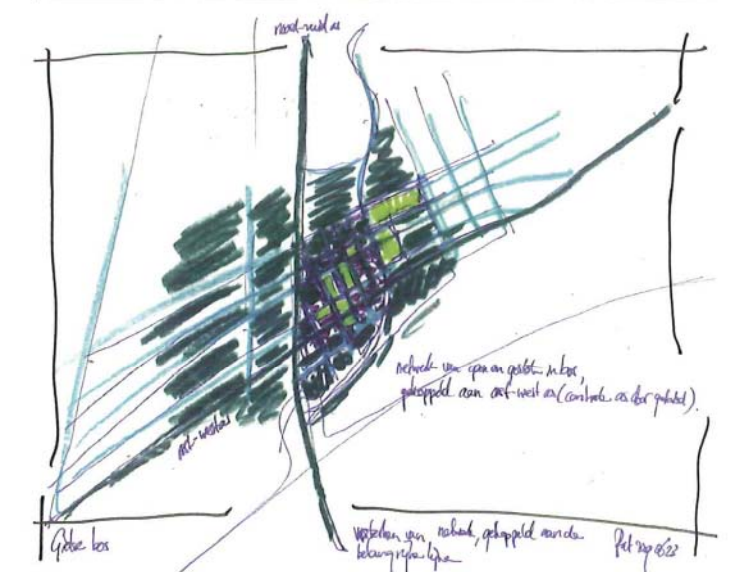 noord-zuid as
netwerk van open en gesloten in bos,
gekoppeld aan oost-west as (centrale as door gebied).
oost-west as
versterken van netwerk, gekoppeld aan de
belangrijke lijnen
Grote bos